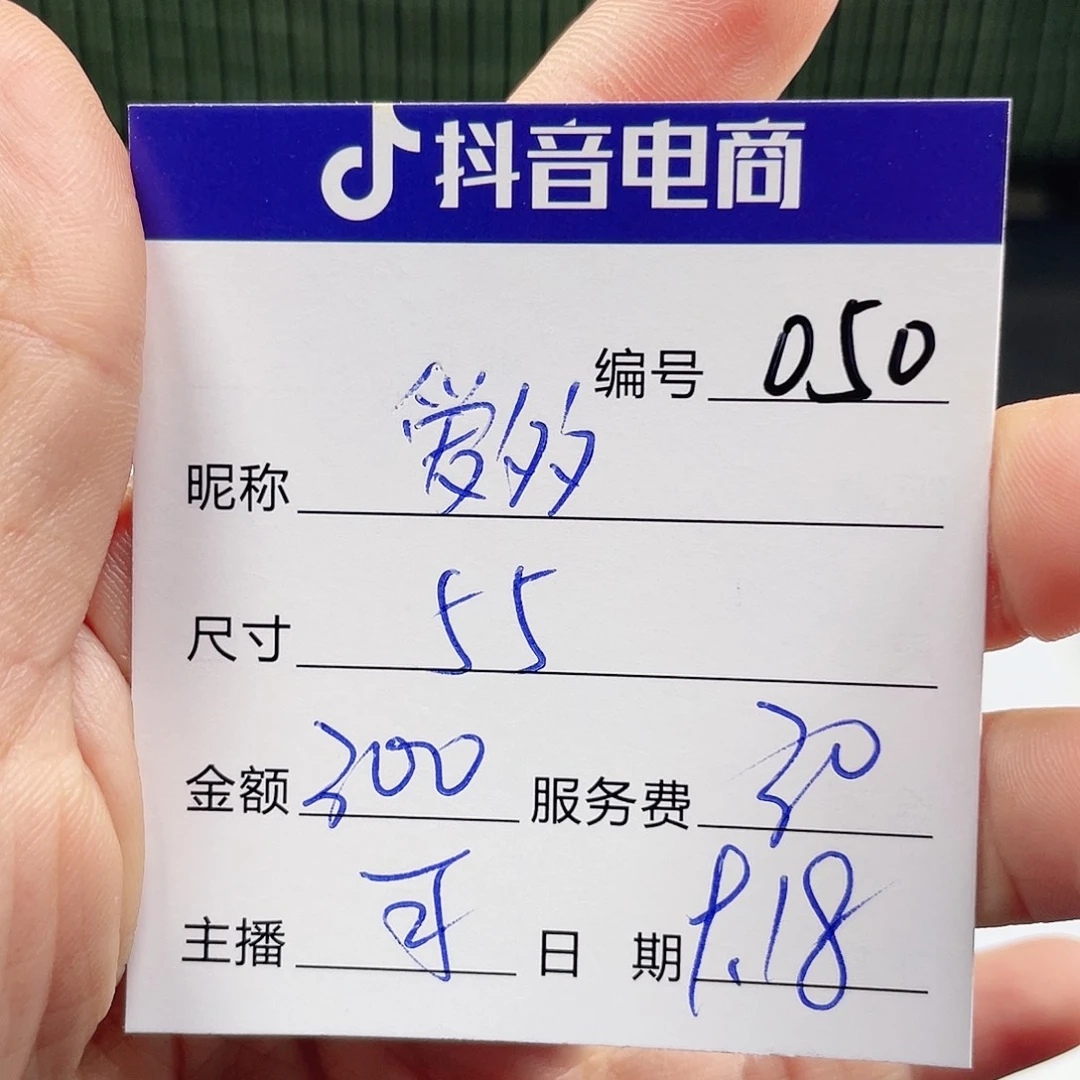 抖音电商
编号 050
昵称 爱的
尺寸 55
金额 300 服务费 30
主播 可 日 期 9.18